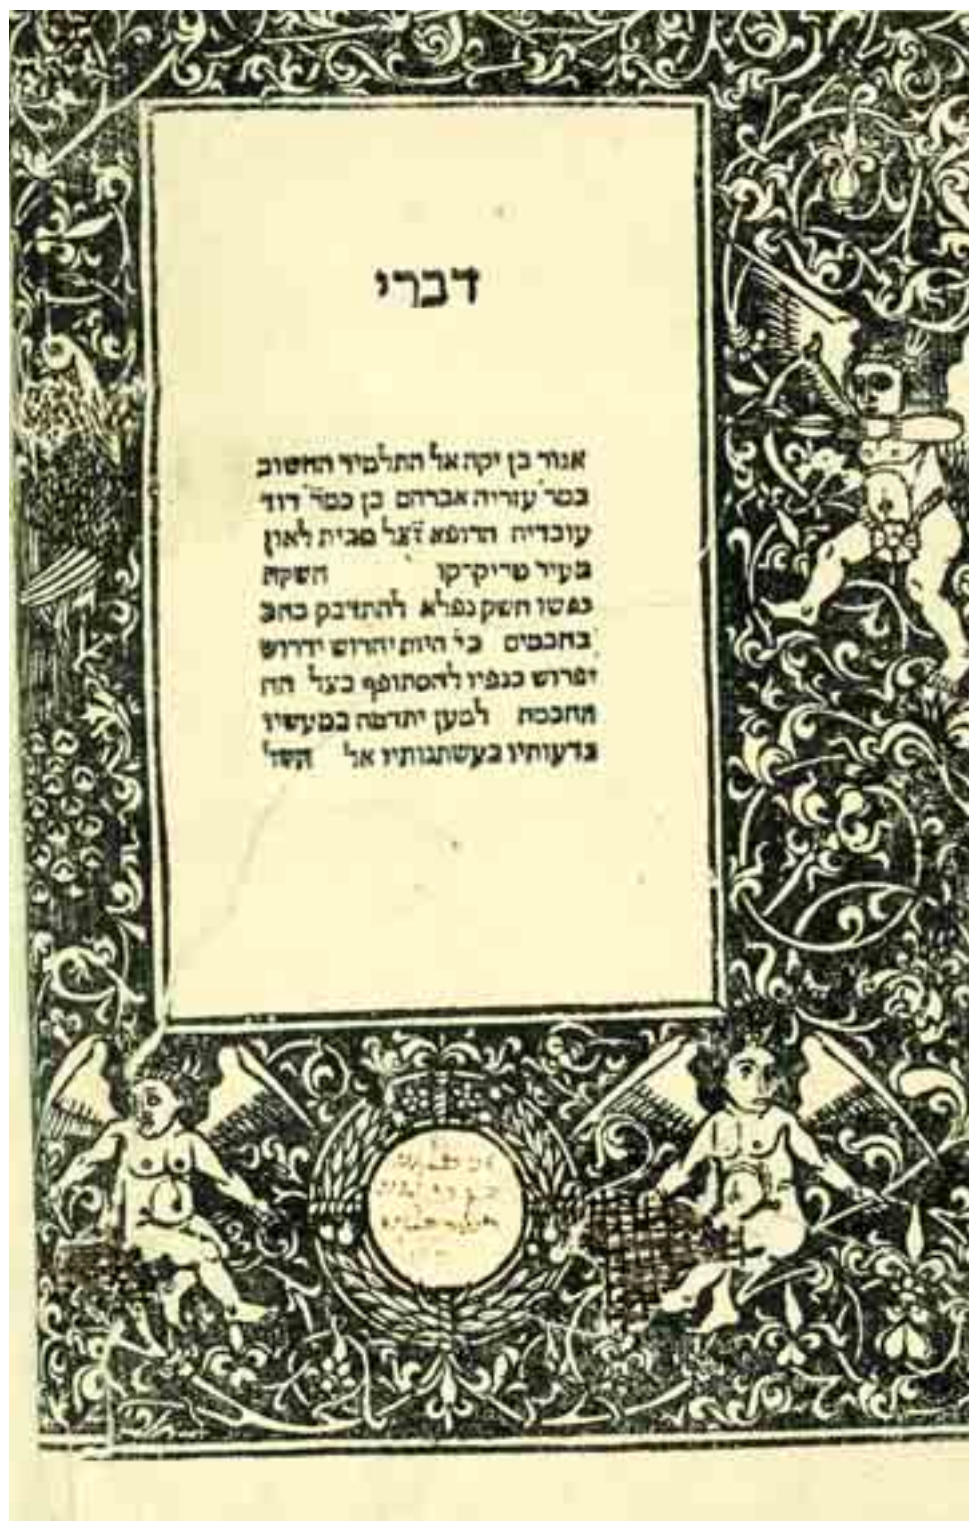 דברי
אגור בן יקה אל התלמיד החשוב
כמר עזריה אברהם בן כמר דוד
עובדיה הרופא זצל מבית לאון
בעיר טריק־קו חשקה
נפשו חשק נפלא להתדבק בחב
בחכמים כי היות יהרוש ידרוש
יפרוש כנפיו להסתופף בצל הח
החכמה למען יתדמה במעשיו
בדעותיו בעשתנותיו אל השל